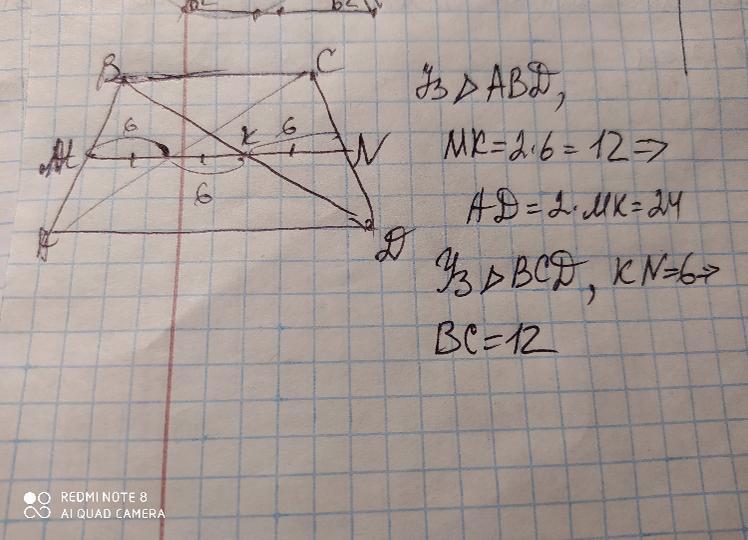 B
C
6
K
6
M
N
6
A
D
Из △ ABD,
MK = 2·6 = 12 ⇒
AD = 2·MK = 24
Из △ BCD, KN = 6 ⇒
BC = 12
REDMI NOTE 8
AI QUAD CAMERA